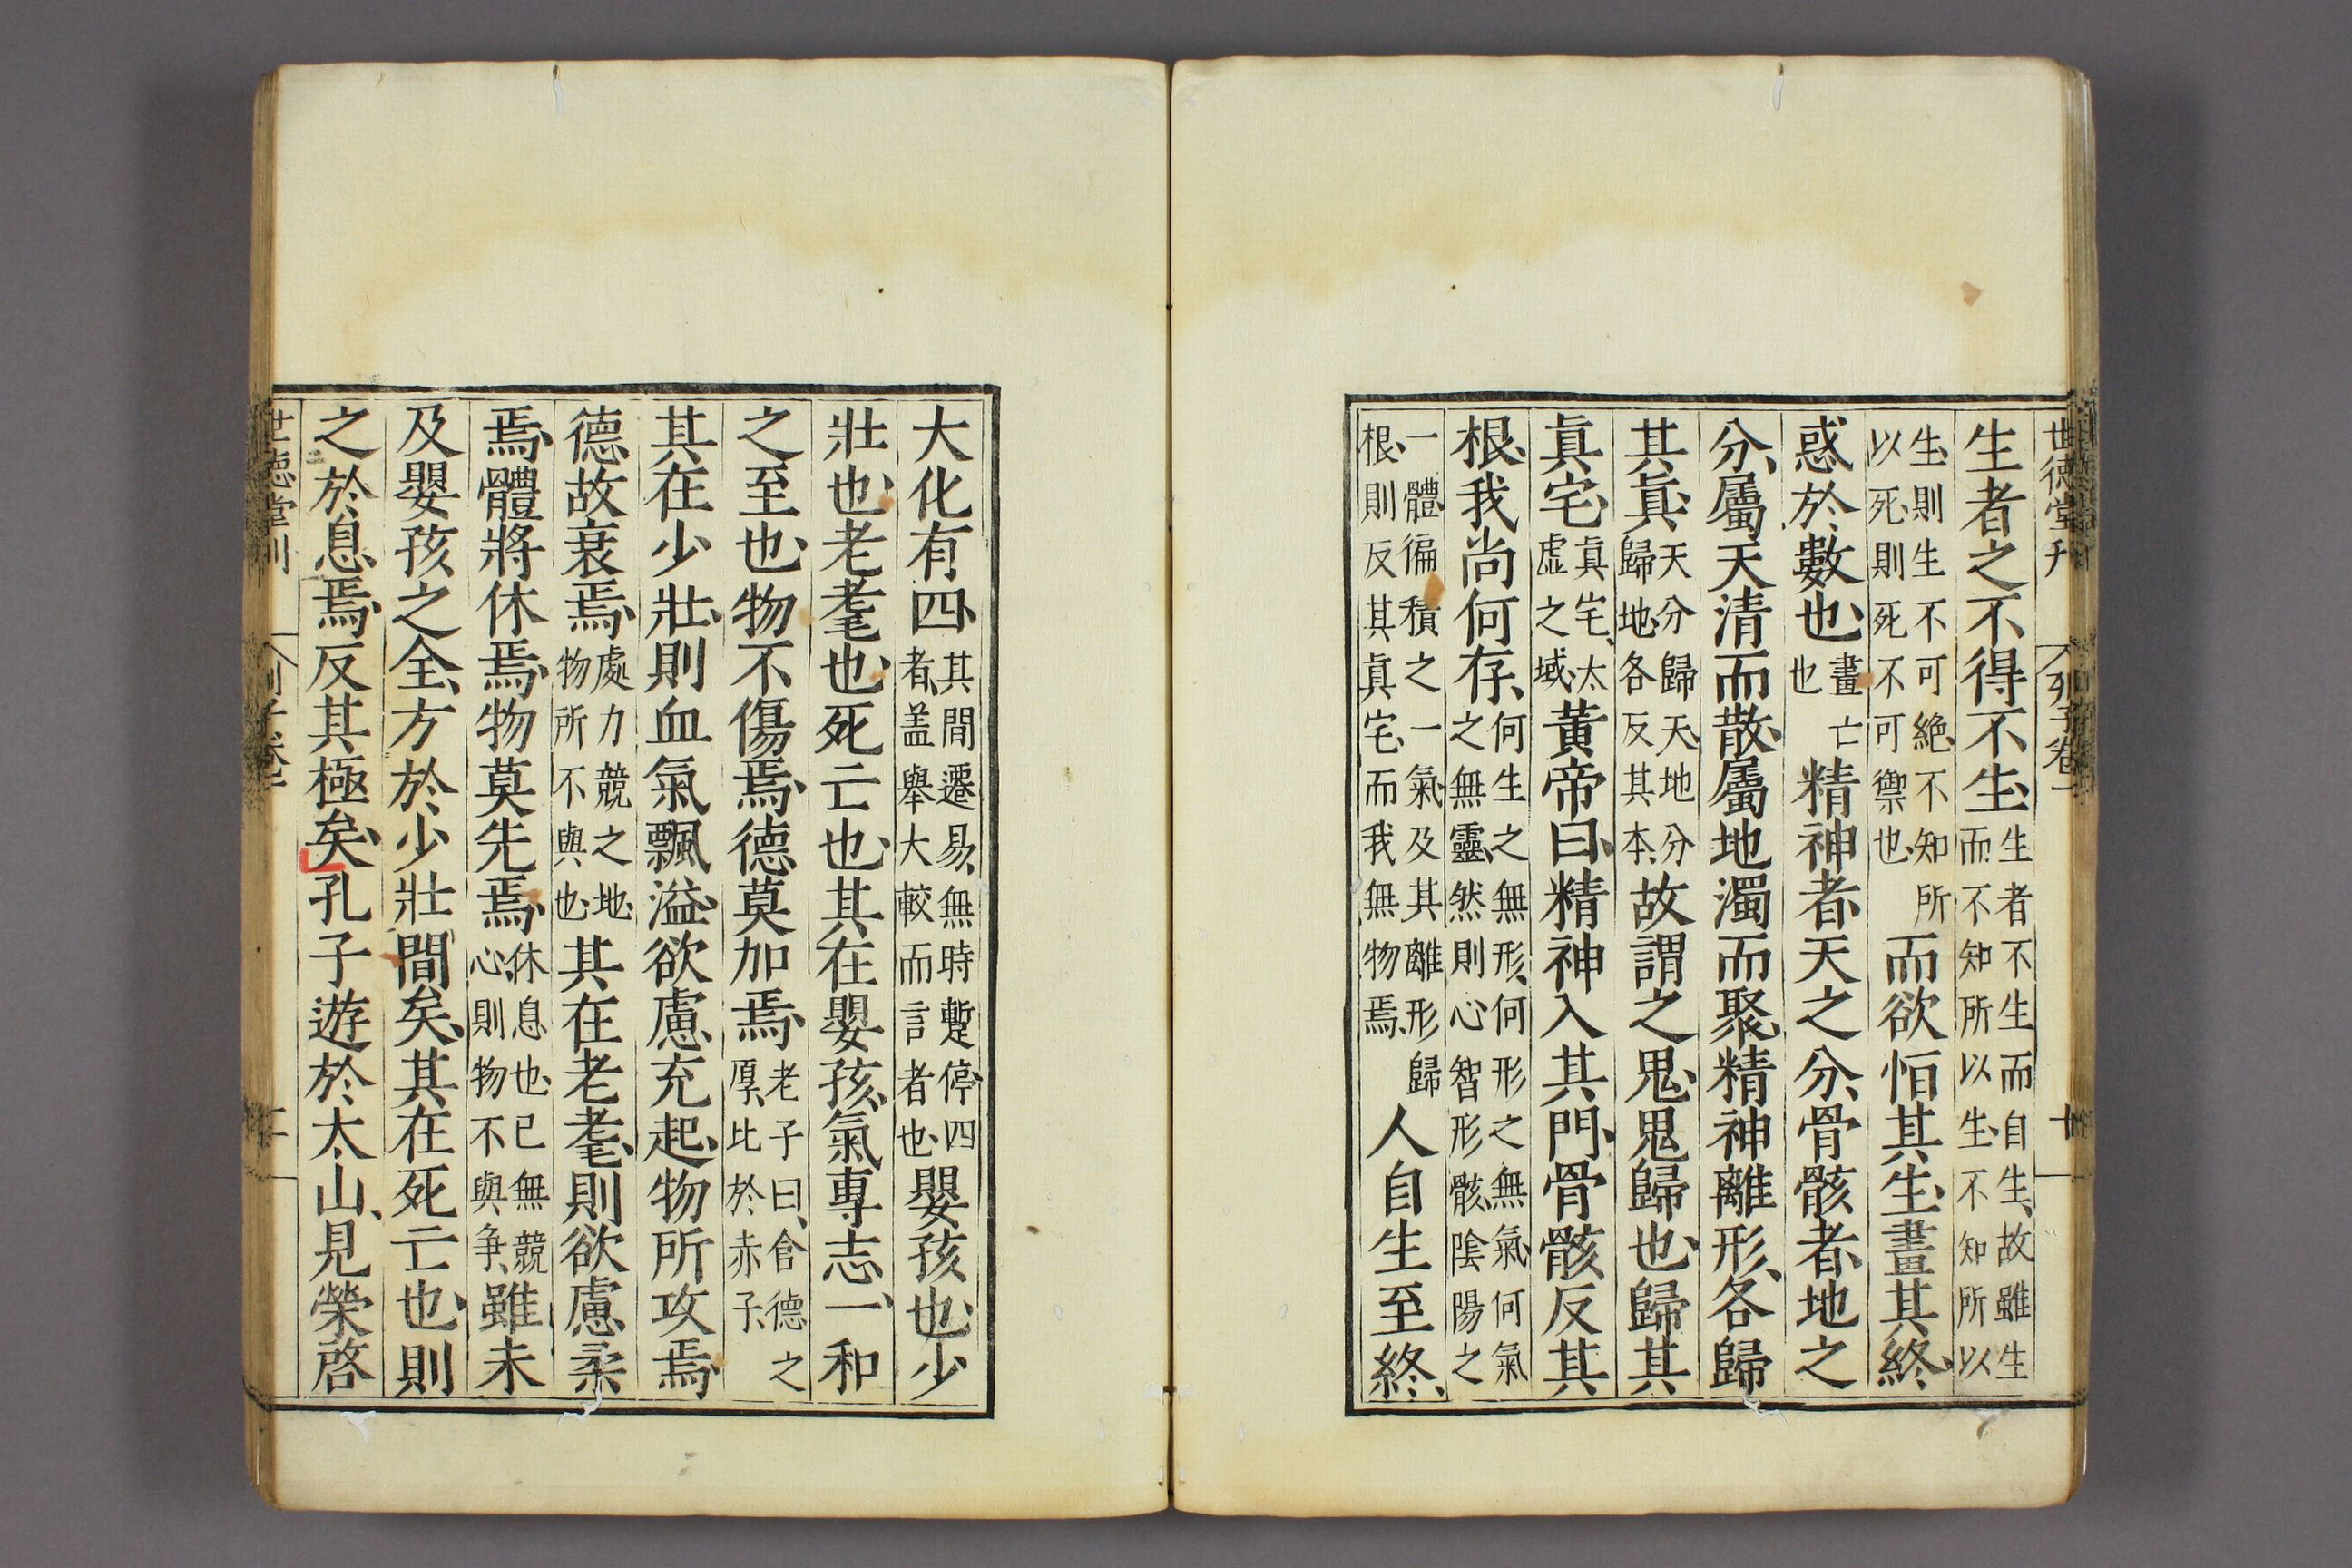 世德堂刊 列子卷一 十
生者之不得不生生者不生而自生故雖生而不知所以生不知所以
生則生不可絶不知所以死則死不可禦也而欲恒其生畫其終
惑於數也畫亡也精神者天之分骨骸者地之
分屬天清而散屬地濁而聚精神離形各歸
其眞天分歸天地分歸地各反其本故謂之鬼鬼歸也歸其
眞宅眞宅太虛之域黃帝曰精神入其門骨骸反其
根我尚何存何生之無形何形之無氣何氣之無靈然則心智形骸陰陽之
一體偏積之一氣及其離形歸根則反其眞宅而我無物焉人自生至終
大化有四其間遷易無時蹔停四者盖舉大較而言者也嬰孩也少
壯也老耄也死亡也其在嬰孩氣專志一和
之至也物不傷焉德莫加焉老子曰含德之厚比於赤子
其在少壯則血氣飄溢欲慮充起物所攻焉
德故衰焉處力競之地物所不與也其在老耄則欲慮柔
焉體將休焉物莫先焉休息也已無競心則物不與爭雖未
及嬰孩之全方於少壯間矣其在死亡也則
之於息焉反其極矣孔子遊於太山見榮啓
世德堂刊